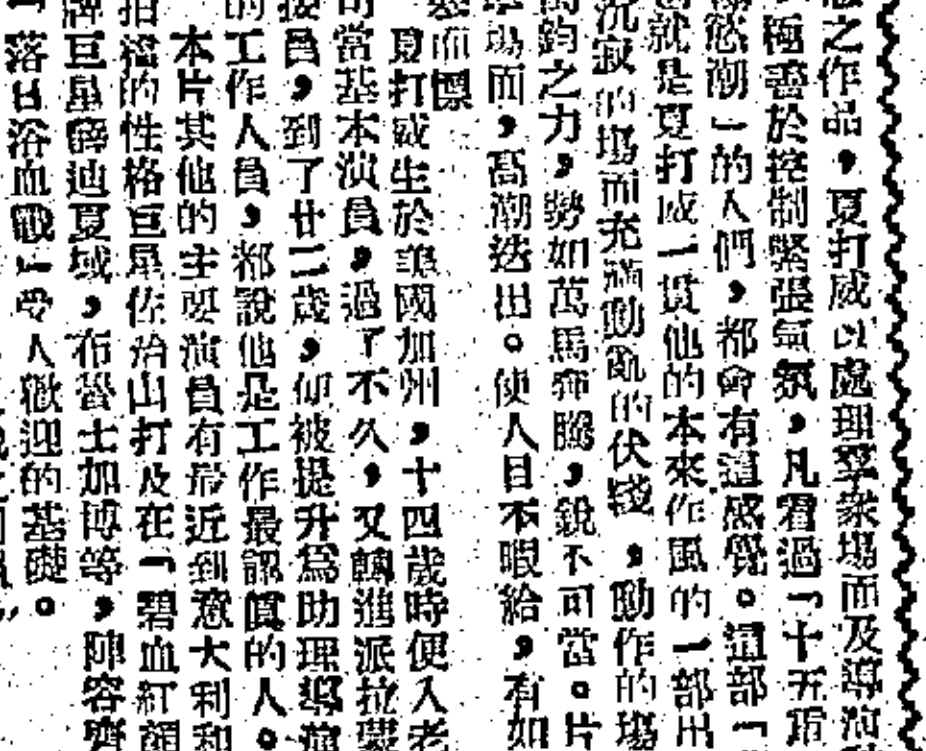 之作品，夏打威以處理羣衆塲面及導演
極善於控制緊張氣氛，凡看過「十五貫
慾潮」的人們，都會有這感覺。這部「
就是夏打威一貫他的本來作風的一部出
沉寂的塲面充滿動亂的伏綫，動作的塲
鈞之力，勢如萬馬奔騰，銳不可當。片
塲面，高潮迭出。使人目不暇給，有如
面標
夏打威生於美國加州，十四歲時便入老
當基本演員，過了不久，又轉進派拉蒙
員，到了廿二歲，便被提升爲助理導演
的工作人員，都說他是工作最認眞的人。
本片其他的主要演員有最近到意大利和
擋的性格巨星佐治山打及在「碧血紅顏
巨星薛迪夏域，布魯士加博等，陣容齊
落日浴血戰」受人歡迎的基礎。